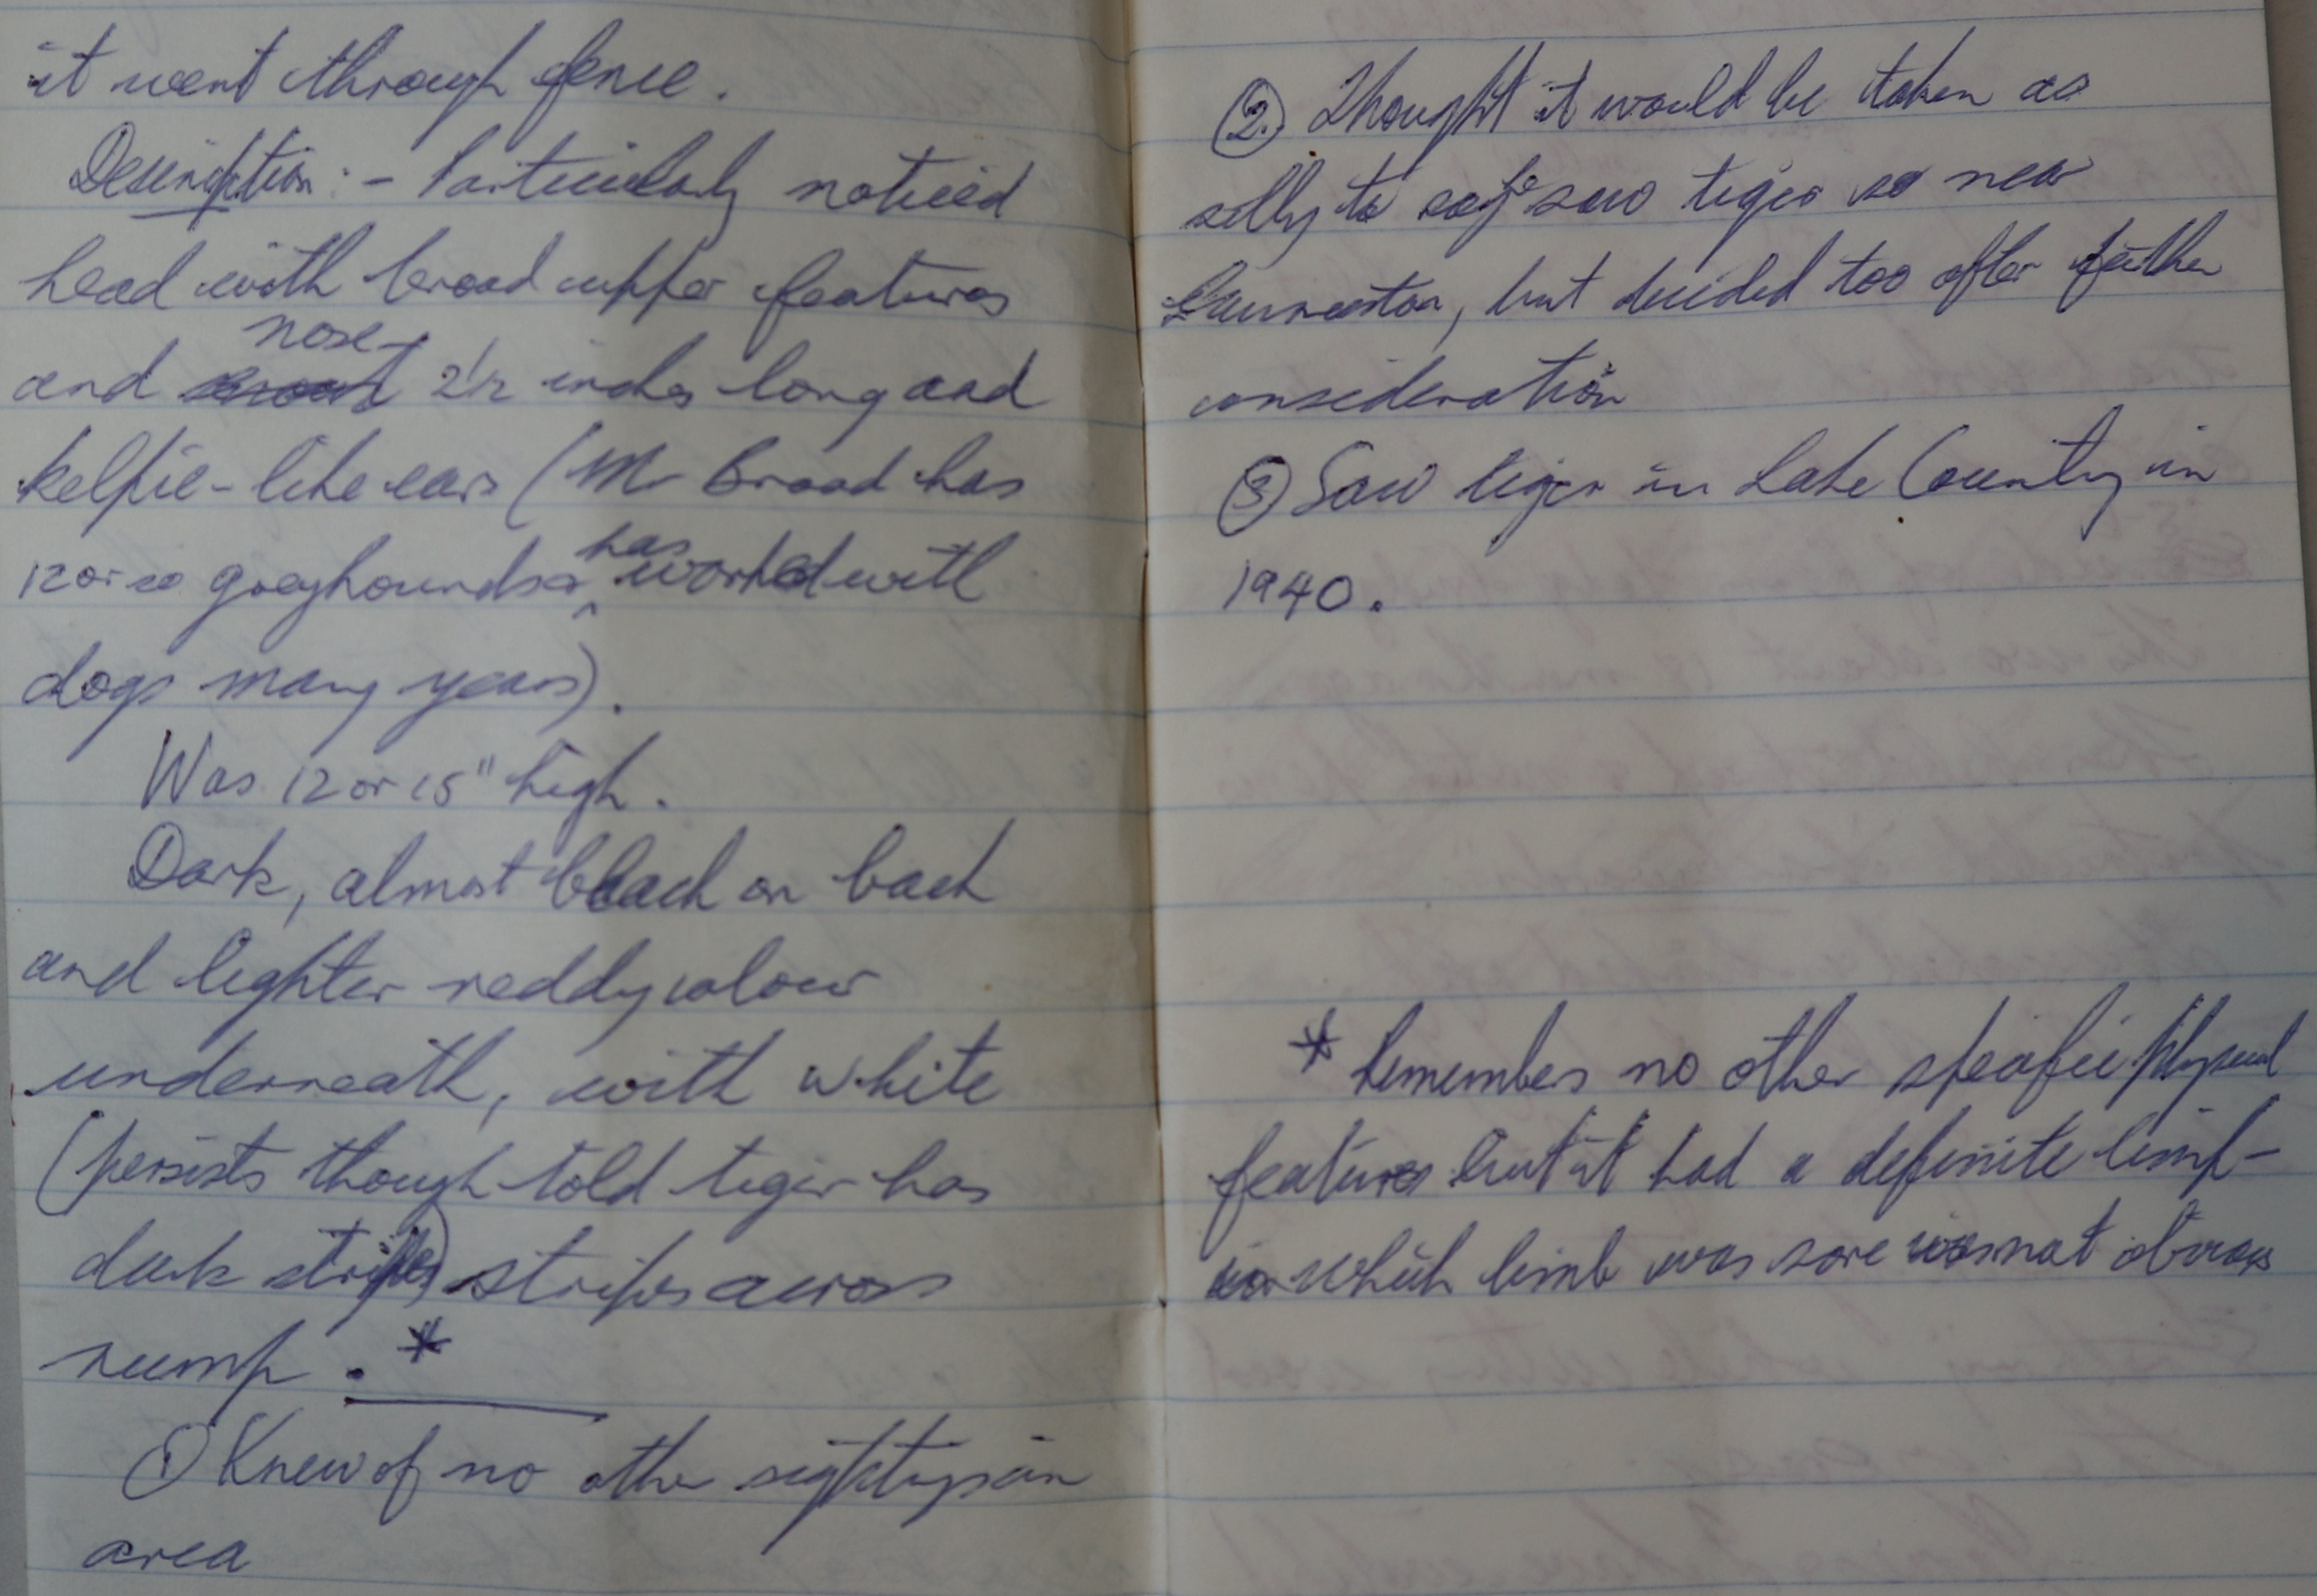 it went through fence.
Description:- Particularly noticed
head with broad upper features
nose
and snout 2½ inches long and
kelpie-like ears (Mr Broad has
12 or so greyhounds & has worked with
dogs many years).
Was 12 or 15" high.
Dark, almost black on back
and lighter reddy colour
underneath, with white
(persists though told tiger has
dark stripes) stripes across
rump. *
① Knew of no other sightings in
area
② Thought it would be taken as
silly to say he saw tiger so near
Launceston, but decided too after futher
consideration
③ Saw tiger in Lake Country in
1940.
* Remembers no other specific physical
features but it had a definite limp-
in which limb was sore was not obvious